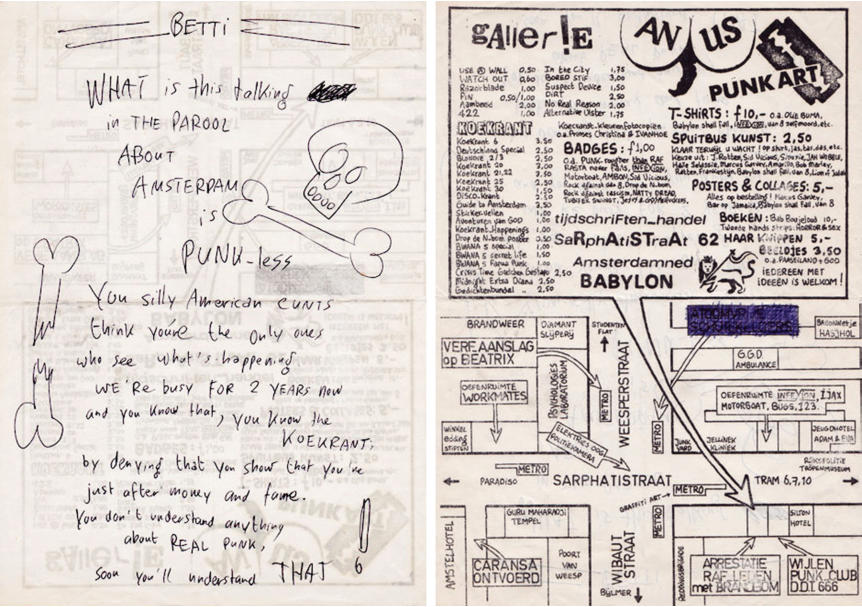 BETTi
WHAT is this talking
in THE PAROOL
ABOUT
AMSTERDAM
is
PUNK-less
You silly American cunts
think youre the only ones
who see what's happening
WE'RE busy FOR 2 YEARS now
and you know that, you know the
KOEKRANT,
by denying that you show that you're
just after money and fame.
You don't understand anything
about REAL PUNK,
soon you'll understand THAT
6
gAllerIE
ANUS
PUNK ART
USE @ WALL 0,50
WATCH OUT 0,60
Razorblade 1.00
Pin 0,50/1,00
Aambeeld 2,00
422 1.00
In the City 1,75
BORED STIF 3,00
Suspect Device 1,50
DiRT 2,50
No Real Reason 2,00
Alternative Ulster 1,75
KOEKRANT
Koekrant 6 3,50
Deutschland Special 2,50
Blondie 2/3 2,50
Koekrant 20 2,00
Koekrant 21,22 2,50
Koekrant 25 2,50
Koekrant 30 1,50
DISCO-Krant 2,50
Guide to Amsterdam 2,50
Stickervellen 1,00
Avonturen van GOD 1,00
Koekrant Happenings 1,00
Drop de N-bom poster 0,50
BWANA 5 special 1,00
BWANA 5 secret life 1,50
BWANA 5 Farwa Punk 1,00
Crisis Time Geleken Gestap 2,50
Midnight Extra Diana 2,50
Gedichtenbundel 2,50
Koeckrandt-kleurenfotocopien
o.a. Prinses Christina & IVANHOE
BADGES: ƒ1,00
o.a. PUNK, rougher than RAF
RASTA never fails, INFEXION,
Motorboat, AMBON, Sid Vicious,
Rock against den 8, Drop de N-bom,
Rock against racism, NATTY DREAD,
T-SHIRTS: ƒ10,-
o.a. OLIE BUMA,
Babylon shall fall, INFEXION, van 8 zelfmoord, etc.
SPUITBUS KUNST: 2,50
KLAAR TERWIJL U WACHT! op shirt, jas, bar, das, etc.
Keuze uit: J. Rotten, Sid Vicious, Siouxie, JAH WOBBLE,
Haile Selassie, Marcus Garvey, Amarillo, Bob Marley,
Rotten, Frankenstijn, Babylon shall fall, van 8, Lion of Judah
POSTERS & COLLAGES: 5,-
Alles op bestelling! Marcus Garvey,
Bar op Jamaica, Babylon shall fall, van 8
BOEKEN: Bob Boujeloud 10,-
Tweede hands strips, HORROR & SEX
tijdschriften_handel
SaRphAtiSTRaAt 62
HAAR KNIPPEN 5,-
BEELDJES 3,50
o.a. PARSEILAND + GOD
Amsterdamned
BABYLON
IEDEREEN MET
IDEEEN IS WELKOM!
BRANDWEER
DIAMANT
SLIJPERIJ
STUDENTEN
FLAT
VERF.AANSLAG
op BEATRIX
PSYCHOLOGIES
LABORATORIUM
METRO
WEESPERSTRAAT
HASJHOL
G.G.D
AMBULANCE
OEFENRUIMTE
WORKMATES
OEFENRUIMTE INFEXION, IJAX
MOTORBOAT, BUGS, 123.
WINKEL
edding
STIFTEN
ELEKTRIES OOG
POLITIEKAMERA
METRO
JUNK
YARD
JELLINEK
KLINIEK
JEUGDHOTEL
ADAM & EVA
RIJKSPOLITIE
TROPENMUSEUM
METRO
PARADISO
SARPHATISTRAAT
TRAM 6,7,10
GRAFFITI ART
METRO
AMSTELHOTEL
GURU MAHARADJI
TEMPEL
METRO
SILTON
HOTEL
CARANSA
ONTVOERD
POORT
VAN
WEESP
WIBAUT
STRAAT
BIJLMER
REDDINGSBRIGADE
ARRESTATIE
RAF LEDEN
met BRANDBOM
WIJLEN
PUNK CLUB
D.D.T. 666